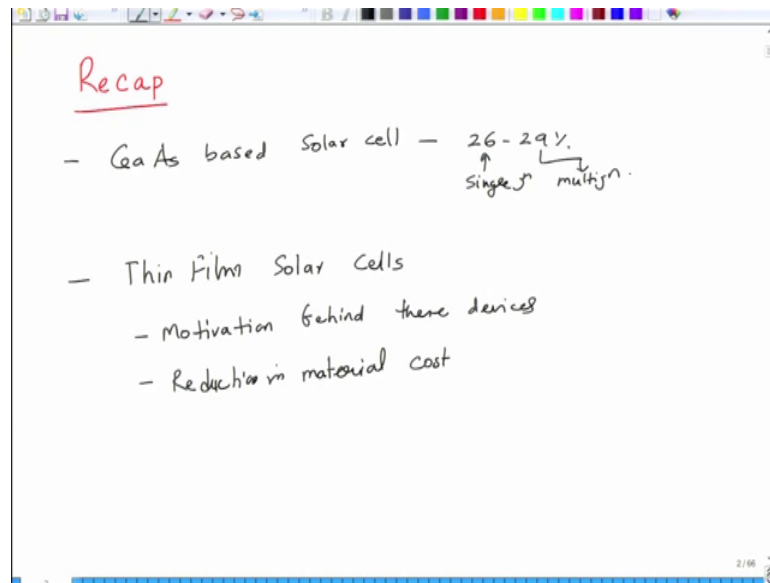 Recap
- GaAs based Solar cell - 26-29%.
single jn multijn.
- Thin Film Solar Cells
- Motivation behind these devices
- Reduction in material cost
2/66